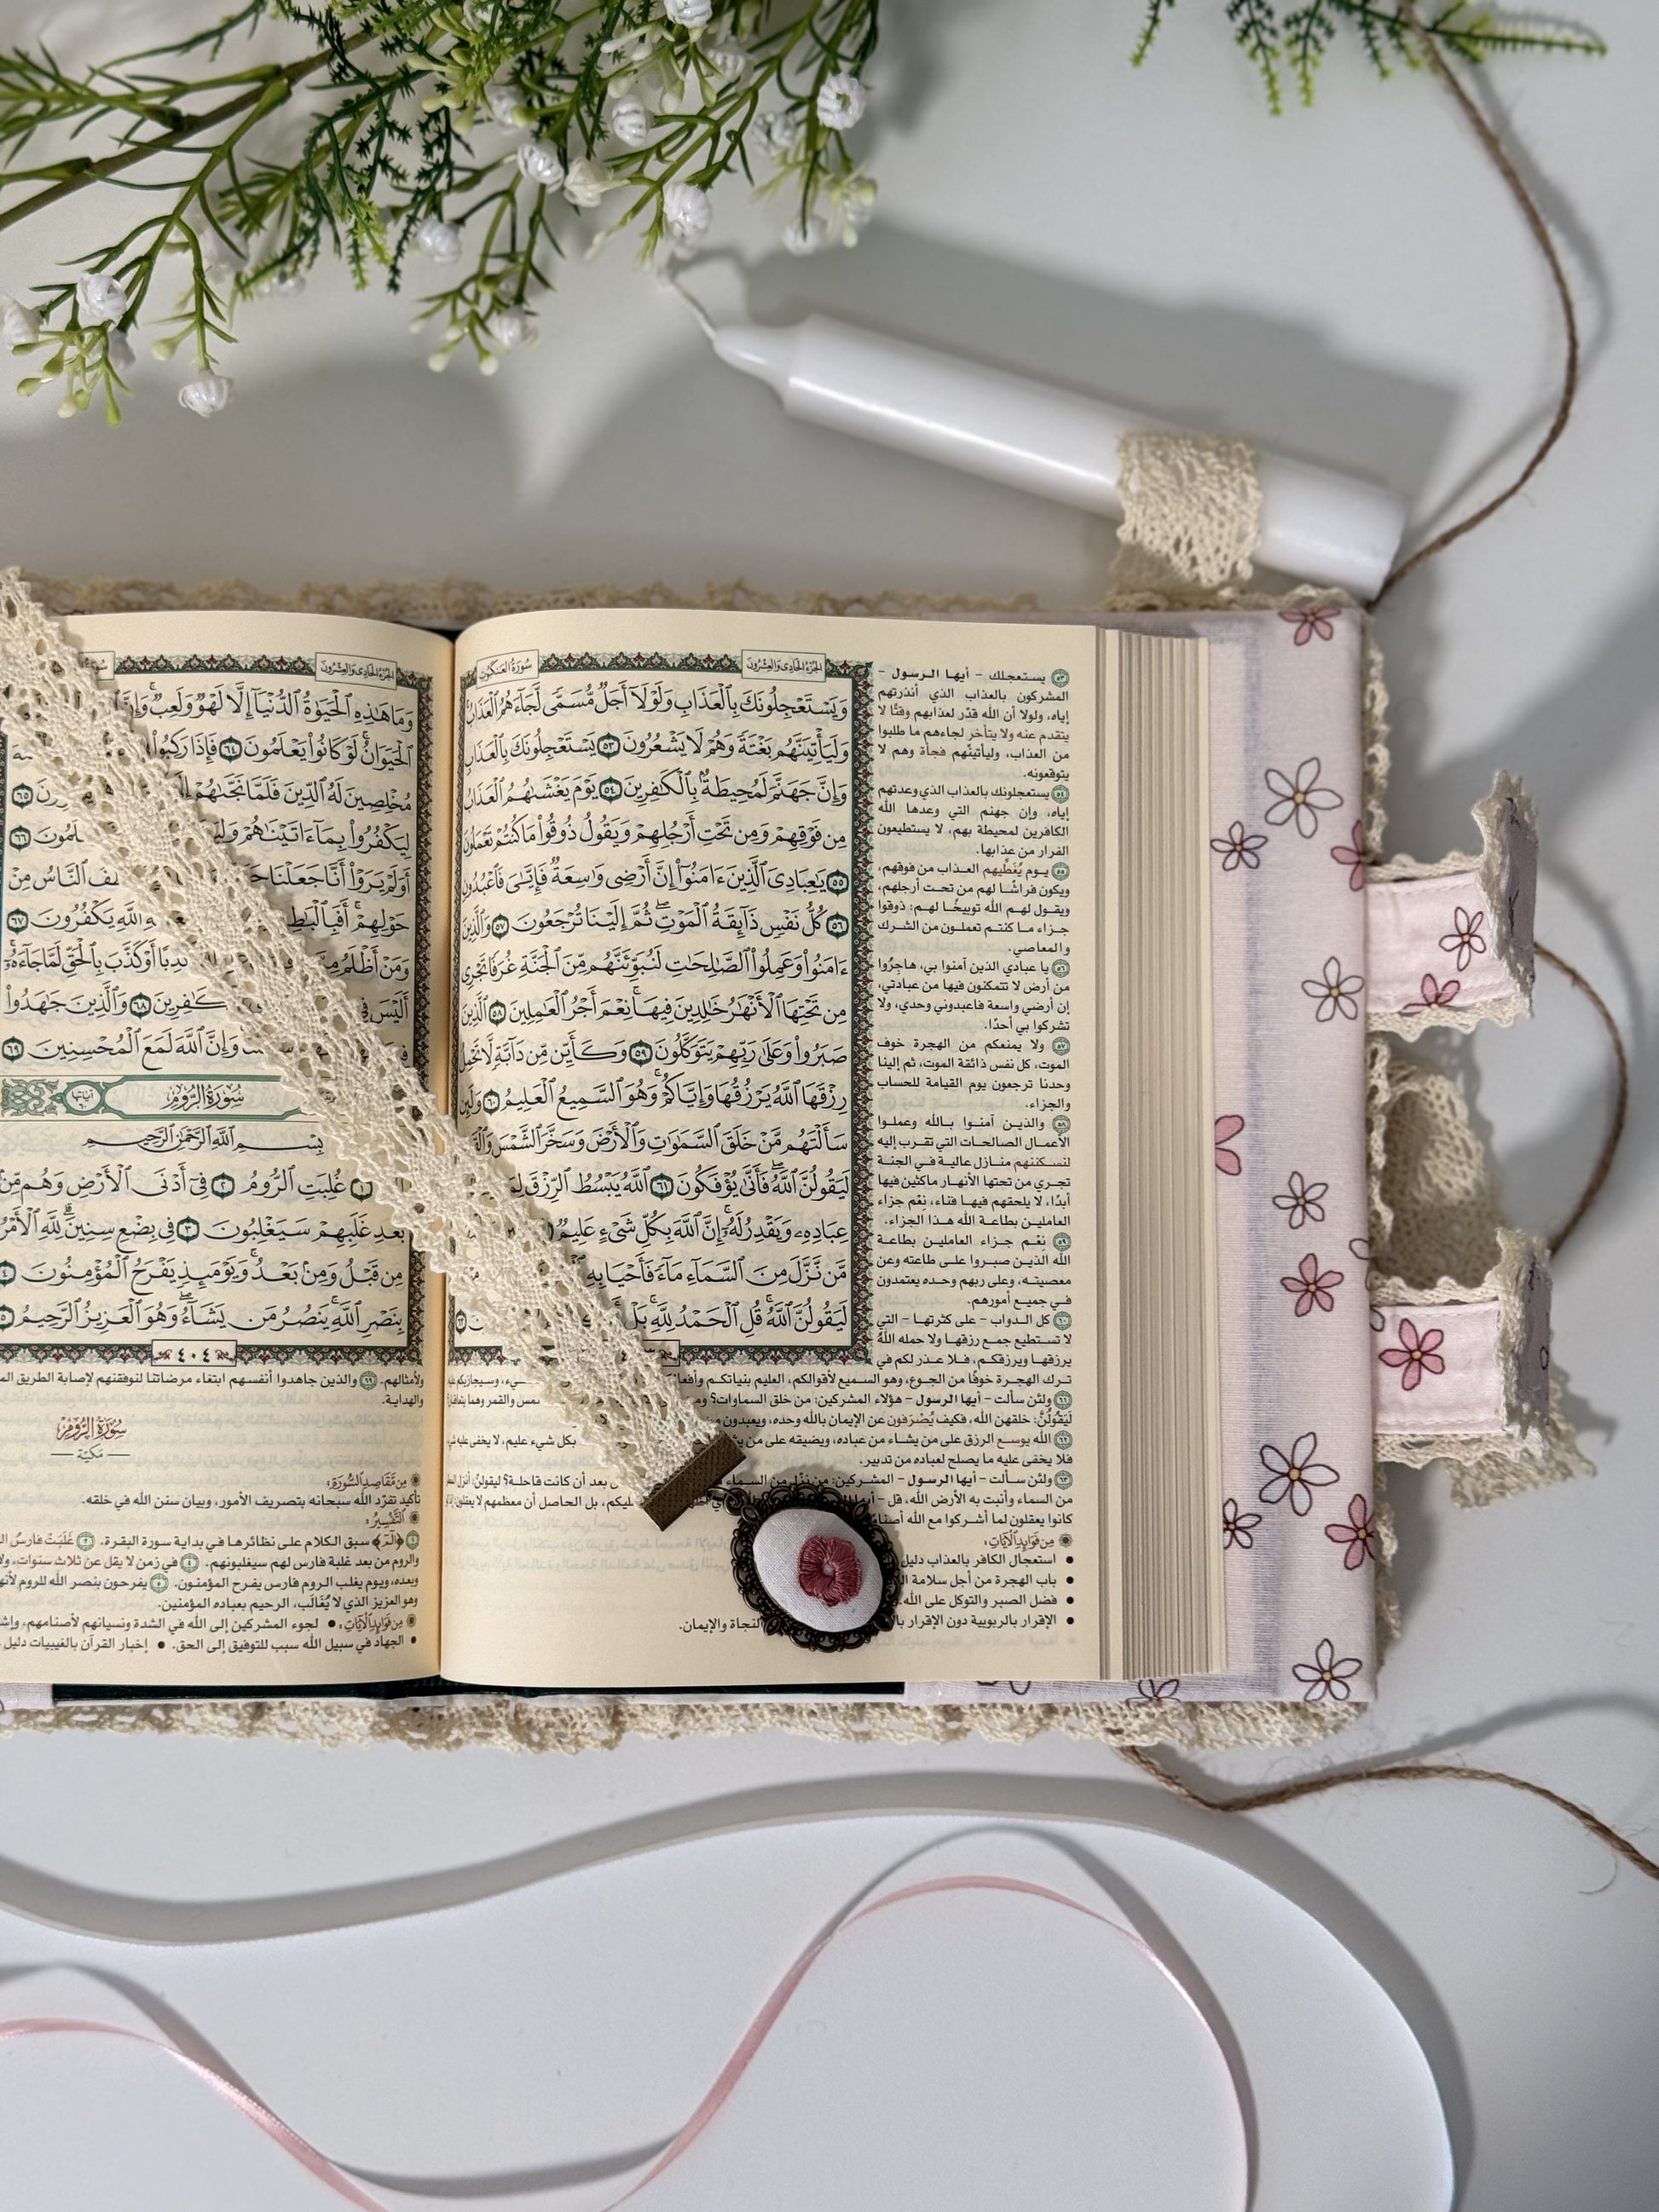 الجزء الحادي والعشرون
سورة العنكبوت
وَيَسْتَعْجِلُونَكَ بِالْعَذَابِ وَلَوْلَا أَجَلٌ مُّسَمًّى لَّجَاءَهُمُ الْعَذَابُ
وَلَيَأْتِيَنَّهُم بَغْتَةً وَهُمْ لَا يَشْعُرُونَ ٥٣ يَسْتَعْجِلُونَكَ بِالْعَذَابِ
وَإِنَّ جَهَنَّمَ لَمُحِيطَةٌ بِالْكَافِرِينَ ٥٤ يَوْمَ يَغْشَاهُمُ الْعَذَابُ
مِن فَوْقِهِمْ وَمِن تَحْتِ أَرْجُلِهِمْ وَيَقُولُ ذُوقُوا مَا كُنتُمْ تَعْمَلُونَ
٥٥ يَاعِبَادِيَ الَّذِينَ ءَامَنُوا إِنَّ أَرْضِي وَاسِعَةٌ فَإِيَّايَ فَاعْبُدُونِ
٥٦ كُلُّ نَفْسٍ ذَائِقَةُ الْمَوْتِ ثُمَّ إِلَيْنَا تُرْجَعُونَ ٥٧ وَالَّذِينَ
ءَامَنُوا وَعَمِلُوا الصَّالِحَاتِ لَنُبَوِّئَنَّهُم مِّنَ الْجَنَّةِ غُرَفًا تَجْرِي
مِن تَحْتِهَا الْأَنْهَارُ خَالِدِينَ فِيهَا نِعْمَ أَجْرُ الْعَامِلِينَ ٥٨ الَّذِينَ
صَبَرُوا وَعَلَى رَبِّهِمْ يَتَوَكَّلُونَ ٥٩ وَكَأَيِّن مِّن دَابَّةٍ لَّا تَحْمِلُ
رِزْقَهَا اللَّهُ يَرْزُقُهَا وَإِيَّاكُمْ وَهُوَ السَّمِيعُ الْعَلِيمُ ٦٠ وَلَئِن
سَأَلْتَهُم مَّنْ خَلَقَ السَّمَاوَاتِ وَالْأَرْضَ وَسَخَّرَ الشَّمْسَ
لَيَقُولُنَّ اللَّهُ فَأَنَّى يُؤْفَكُونَ ٦١ اللَّهُ يَبْسُطُ الرِّزْقَ
عِبَادِهِ وَيَقْدِرُ لَهُ إِنَّ اللَّهَ بِكُلِّ شَيْءٍ عَلِيمٌ
مَّن نَّزَّلَ مِنَ السَّمَاءِ مَاءً فَأَحْيَا بِهِ
لَيَقُولُنَّ اللَّهُ قُلِ الْحَمْدُ لِلَّهِ بَلْ
٥٣ يستعجلك - أيها الرسول -
المشركون بالعذاب الذي أنذرتهم
إياه، ولولا أن الله قدّر لعذابهم وقتًا لا
يتقدم عنه ولا يتأخر لجاءهم ما طلبوا
من العذاب، وليأتينّهم فجأة وهم لا
يتوقعونه.
٥٤ يستعجلونك بالعذاب الذي وعدتهم
إياه، وإن جهنم التي وعدها الله
الكافرين لمحيطة بهم، لا يستطيعون
الفرار من عذابها.
٥٥ يوم يُغَطِّيهم العذاب من فوقهم،
ويكون فراشًا لهم من تحت أرجلهم،
ويقول لهم الله توبيخًا لهم: ذوقوا
جزاء ما كنتم تعملون من الشرك
والمعاصي.
٥٦ يا عبادي الذين آمنوا بي، هاجِرُوا
من أرض لا تتمكنون فيها من عبادتي،
إن أرضي واسعة فاعبدوني وحدي، ولا
تشركوا بي أحدًا.
٥٧ ولا يمنعكم من الهجرة خوف
الموت، كل نفس ذائقة الموت، ثم إلينا
وحدنا ترجعون يوم القيامة للحساب
والجزاء.
٥٨ والذين آمنوا بالله وعملوا
الأعمال الصالحات التي تقرب إليه
لنسكننهم منازل عالية في الجنة
تجري من تحتها الأنهار ماكثين فيها
أبدًا، لا يلحقهم فيها فناء، نِعْم جزاء
العاملين بطاعة الله هذا الجزاء.
٥٩ نِعْم جزاء العاملين بطاعة
الله الذين صبروا على طاعته وعن
معصيته، وعلى ربهم وحده يعتمدون
في جميع أمورهم.
٦٠ كل الدواب - على كثرتها - التي
لا تستطيع جمع رزقها ولا حمله اللهُ
يرزقها ويرزقكم، فلا عذر لكم في
ترك الهجرة خوفًا من الجوع، وهو السميع لأقوالكم، العليم بنياتكم
٦١ ولئن سألت - أيها الرسول - هؤلاء المشركين: من خلق السماوات؟
لَيَقُولُنَّ: خلقهن الله، فكيف يُصْرَفون عن الإيمان بالله وحده، ويعبدون
٦٢ الله يوسع الرزق على من يشاء من عباده، ويضيقه على من بكل شيء عليم، لا يخفى عليه
فلا يخفى عليه ما يصلح لعباده من تدبير.
٦٣ ولئن سألت - أيها الرسول - المشركين: من نزّل من السماء بعد أن كانت قاحلة؟ ليقولن:
من السماء وأنبت به الأرض الله، قل -
كانوا يعقلون لما أشركوا مع الله
من فوائد الآيات
• استعجال الكافر بالعذاب دليل
• باب الهجرة من أجل سلامة
• فضل الصبر والتوكل على الله.
• الإقرار بالربوبية دون الإقرار النجاة والإيمان.
الجزء الحادي والعشرون
وَمَا هَذِهِ الْحَيَاةُ الدُّنْيَا إِلَّا لَهْوٌ وَلَعِبٌ وَإِنَّ
الْحَيَوَانُ لَوْ كَانُوا يَعْلَمُونَ ٦٤ فَإِذَا رَكِبُوا
مُخْلِصِينَ لَهُ الدِّينَ فَلَمَّا نَجَّاهُمْ ٦٥
لِيَكْفُرُوا بِمَا ءَاتَيْنَاهُمْ ٦٦
أَوَلَمْ يَرَوْا أَنَّا جَعَلْنَا النَّاسُ مِنْ
حَوْلِهِمْ اللَّهِ يَكْفُرُونَ ٦٧
وَمَنْ أَظْلَمُ أَوْ كَذَّبَ بِالْحَقِّ لَمَّا جَاءَهُ
أَلَيْسَ ٦٨ وَالَّذِينَ جَاهَدُوا
وَإِنَّ اللَّهَ لَمَعَ الْمُحْسِنِينَ ٦٩
سورة الروم
بِسْمِ اللَّهِ الرَّحْمَنِ الرَّحِيمِ
١ غُلِبَتِ الرُّومُ ٢ فِي أَدْنَى الْأَرْضِ وَهُم مِّن
بَعْدِ غَلَبِهِمْ سَيَغْلِبُونَ ٣ فِي بِضْعِ سِنِينَ لِلَّهِ الْأَمْرُ
مِن قَبْلُ وَمِن بَعْدُ وَيَوْمَئِذٍ يَفْرَحُ الْمُؤْمِنُونَ ٤
بِنَصْرِ اللَّهِ يَنصُرُ مَن يَشَاءُ وَهُوَ الْعَزِيزُ الرَّحِيمُ ٥
٤٠٤
ولأمثالهم. ٦٩ والذين جاهدوا أنفسهم ابتغاء مرضاتنا لنوفقنهم لإصابة الطريق
والهداية.
سورة الروم
مكية
من مقاصد السورة
تأكيد تفرّد الله سبحانه بتصريف الأمور، وبيان سنن الله في خلقه.
التفسير
١ ﴿الم﴾ سبق الكلام على نظائرها في بداية سورة البقرة. ٢ غَلَبَتْ فارس
والروم من بعد غلبة فارس لهم سيغلبونهم. ٤ في زمن لا يقل عن ثلاث سنوات،
وبعده، ويوم يغلب الروم فارس يفرح المؤمنون. ٥ يفرحون بنصر الله للروم
وهو العزيز الذي لا يُغَالَب، الرحيم بعباده المؤمنين.
من فوائد الآيات • لجوء المشركين إلى الله في الشدة ونسيانهم لأصنامهم،
• الجهاد في سبيل الله سبب للتوفيق إلى الحق. • إخبار القرآن بالغيبيات دليل